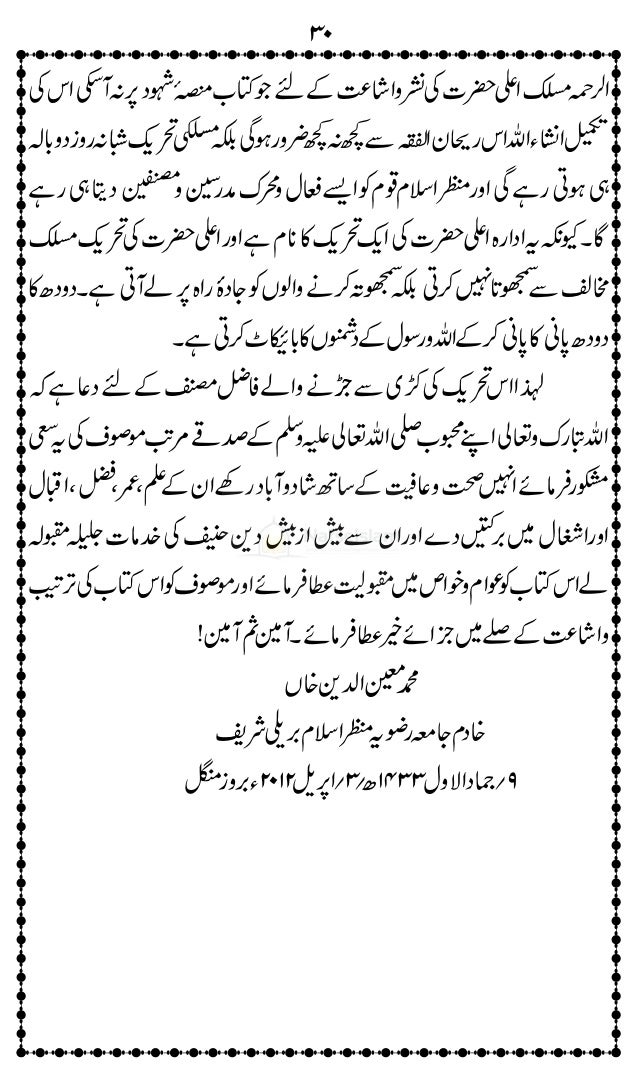 ۳۰
الرحمہ مسلک اعلی حضرت کی نشر واشاعت کے لئے جو کتاب منصۂ شہود پر نہ آسکی اس کی
تکمیل انشاء اللہ اس ریحان الفقہ سے کچھ نہ کچھ ضرور ہوگی بلکہ مسلکی تحریک شبانہ روز دوبالہ
ہی ہوتی رہے گی اور منظر اسلام قوم کو ایسے فعال ومحرک مدرسین ومصنفین دیتا ہی رہے
گا۔ کیونکہ یہ ادارہ اعلی حضرت کی ایک تحریک کا نام ہے اور اعلی حضرت کی تحریک مسلک
مخالف سے سمجھوتا نہیں کرتی بلکہ سمجھوتہ کرنے والوں کو جادۂ راہ پر لے آتی ہے۔ دودھ کا
دودھ پانی کا پانی کرکے اللہ ورسول کے دشمنوں کا بائیکاٹ کرتی ہے۔
لہذا اس تحریک کی کڑی سے جڑنے والے فاضل مصنف کے لئے دعا ہے کہ
اللہ تبارک وتعالی اپنے محبوب صلی اللہ تعالی علیہ وسلم کے صدقے مرتب موصوف کی یہ سعی
مشکور فرمائے انہیں صحت وعافیت کے ساتھ شاد وآباد رکھے ان کے علم، عمر، فضل، اقبال
اور اشغال میں برکتیں دے اور ان سے بیش از بیش دین حنیف کی خدمات جلیلہ مقبولہ
لے اس کتاب کو عوام وخواص میں مقبولیت عطا فرمائے اور موصوف کو اس کتاب کی ترتیب
واشاعت کے صلے میں جزائے خیر عطا فرمائے۔ آمین ثم آمین!
محمد معین الدین خاں
خادم جامعہ رضویہ منظر اسلام بریلی شریف
۹؍جماد الاول ۱۴۳۳ھ؍۳؍اپریل ۲۰۱۲ء بروز منگل